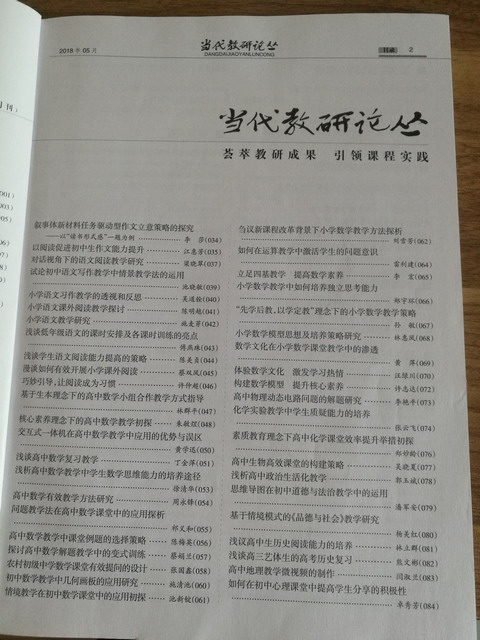 2016 年 05 月
当代教研论丛
DANGDAIJIAOYANLUNCONG
目录 2
当代教研论丛
荟萃教研成果 引领课程实践
叙事体新材料任务驱动型作文立意策略的探究
——以“读书形式感”一题为例 李 莎(034)
以阅读促进初中生作文能力提升 江惠芳(035)
对话视角下的语文阅读教学研究 梁晓琴(037)
试论初中语文写作教学中情景教学法的运用
(039)
小学语文习作教学的透视和反思 (040)
小学语文课外阅读教学探讨 陈明艳(041)
小学语文教学研究 (042)
浅谈低年级语文的课时安排及各课时训练的亮点
(043)
浅谈学生语文阅读能力提高的策略 陈美贞(044)
漫谈如何有效开展小学课外阅读 蔡双凤(045)
巧妙引导,让阅读成为习惯 许仲超(046)
基于生本理念下的高中数学小组合作教学方式指导
林群平(047)
核心素养理念下的高中数学教学初探 朱敏煜(048)
交互式一体机在高中数学教学中应用的优势与误区
黄学远(050)
浅谈高中数学复习教学 丁金萍(051)
浅析高中数学教学中学生数学思维能力的培养途径
徐清华(053)
高中数学有效教学方法研究 周永锋(054)
问题教学法在高中数学课堂中的应用探析
祁义和(055)
高中数学教学中课堂例题的选择策略 陈梅英(056)
探讨高中数学解题教学中的变式训练 蔡娟兰(057)
农村初级中学数学课堂有效提问的设计 张国鑫(058)
初中数学教学中几何画板的应用研究 施清池(060)
情境教学在初中数学课堂中的应用初探 池新钗(061)
刍议新课程改革背景下小学数学教学方法探析
刘雪芳(062)
如何在运算教学中激活学生的问题意识
雷利建(064)
立足四基教学 提高数学素养 李 宏(065)
小学数学教学中如何培养独立思考能力
(066)
“先学后教,以学定教”理念下的小学数学教学策略
孙 敏(067)
小学数学模型思想及培养策略研究 林惠凤(068)
数学文化在小学数学课堂教学中的渗透
黄 萍(069)
体验数学文化 激发学习热情 江琼川(070)
构建数学模型 提升核心素养 许志远(072)
高中物理动态电路问题的解题研究 李艳平(073)
化学实验教学中学生质疑能力的培养
张云飞(074)
素质教育理念下高中化学课堂效率提升举措初探
郑妙龄(076)
高中生物高效课堂的构建策略 吴晓夏(077)
浅析高中政治生活化教学 郭玉斌(078)
思维导图在初中道德与法治教学中的运用
潘翠安(079)
基于情境模式的《品德与社会》教学研究
杨美红(080)
浅议高中生历史阅读能力的培养 林立群(081)
浅谈高三艺体生的高考历史复习 熊文彬(082)
高中地理教学微视频的制作 闫淑兰(083)
如何在初中心理课堂中提高学生分享的积极性
卓秀芳(084)